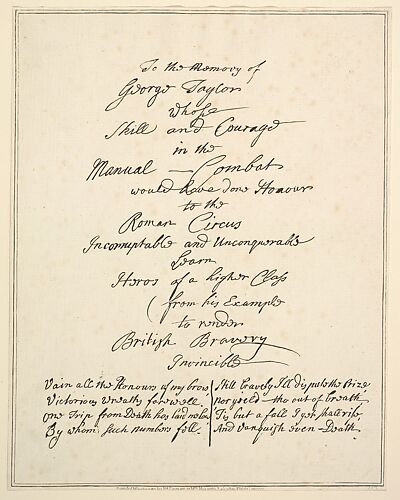 To the Memory of
George Taylor
whose
Skill and Courage
in the
Manual — Combat
would have done Honour
to the
Roman Circus
Incorruptable and Unconquerable
Learn
Heros of a higher Class
(from his Example
to render
British Bravery
Invincible
Vain all the Honours of my brow
Victorious Wreaths farewell.
One Trip from Death has laid me low
By whom Such numbers fell.
Still bravely I'll dispute the Prize
nor yield — tho out of breath
Tis but a fall I yet shall rise,
And Vanquish even — Death.